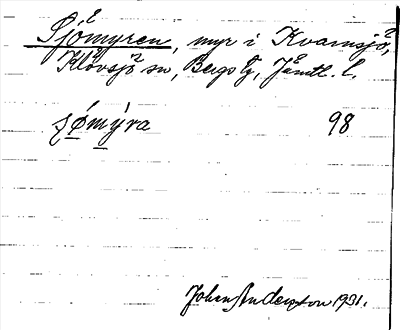 Sjömyren, myr i Kvarnsjö,
Klövsjö sn, Bergs tg, Jämtl. l.
sǿmýra 98
Johan Anderson 1931.